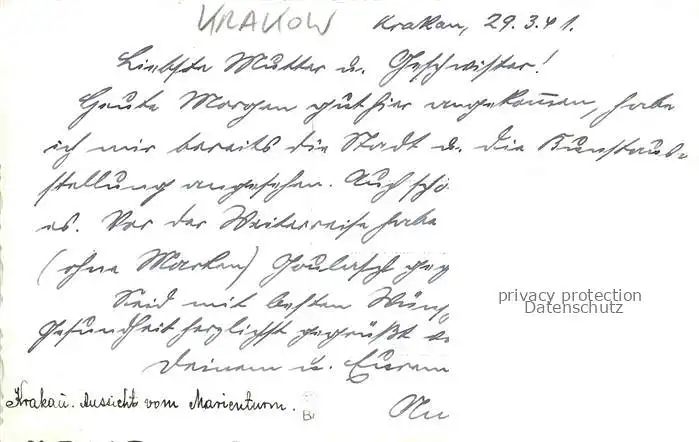 KRAKOW
Krakau, 29.3.41.
Liebste Mutter u. Geschwister!
Heute Morgen gut hier angekommen, habe
ich mir bereits die Stadt u. die Kunstaus-
stellung angesehen. Auch schö
es. Vor der Weiterreise habe
(ohne Marken) Goulasch geg
Seid mit besten Wüns
Gesundheit herzlichst gegrüßt
Deinem u. Eurem
privacy protection
Datenschutz
Krakau. Aussicht vom Marienturm.